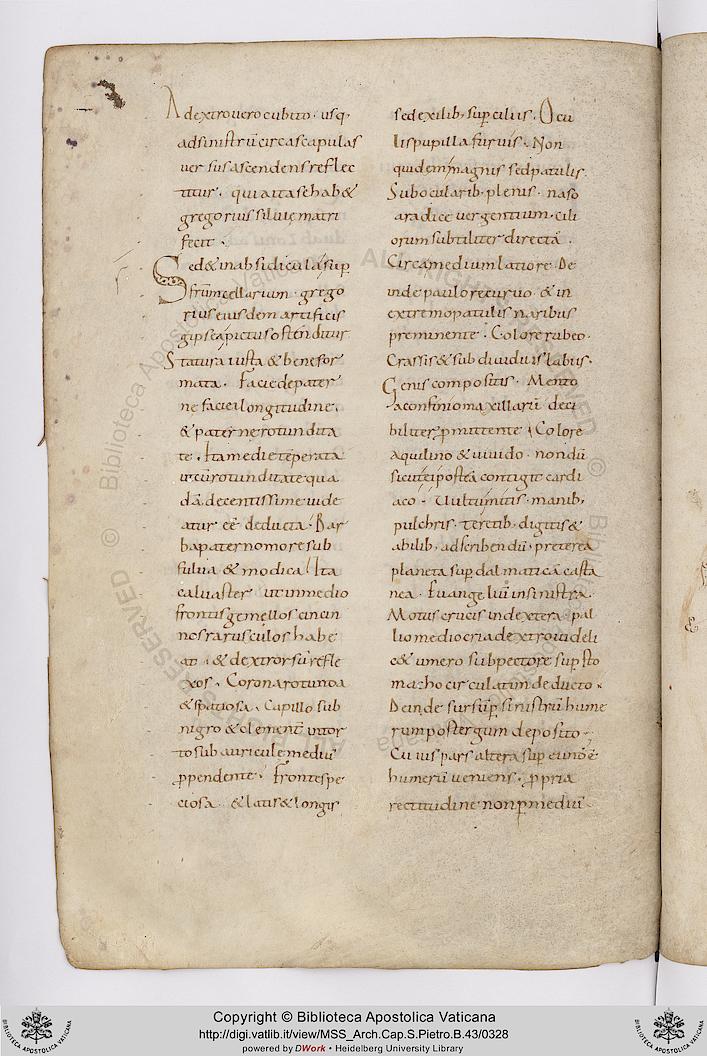 A dextro uero cubito · usq·
ad sinistrũ circa scapulas
uersus ascendens reflec
titur · qui a ita se hab&
gregorius siluie matri
fecit ·
Sed & in absidicula sup
frm̃ cellarium · grego
rius eiusdem artificis
gipsea pictus ostenditur
Statura iusta & bene for
mata · Facie de pater
ne faciei longitudine ·
& paterne rotundita
te · Ita medie tẽperata
ut cũ rotunditate qua
dã decentissime uide
atur eẽ deducta · Bar
ba paterno more sub
fulua & modica · Ita
caluaster ut in medio
frontis gemellos cincin
nos rarusculos habe
at · & dextrorsũ refle
xos · Corona rotunda
& spatiosa · Capillo sub
nigro & clement̃ intor
to sub auricule mediũ
ꝓpendente · Fronte spe
ciosa · & latis & longis
sed exilib · sup̱ciliis · Ocu
lis pupilla furuis · Non
quidem magnis sed patulis ·
Subocularib · plenis · naso
a radice uergentium cili
orum subtiliter directã ·
Circa medium latiore · De
inde paulo recuruo · & in
extremo patulis naribus
preminente · Colore rubeo ·
Crassis & sub diuiduis labiis ·
Genis compositis · Mento
a confinio maxillarũ deci
biliter p̱mittente · Colore
aquilino & uiuido · nondũ
sicut ei postea contigit cardi
aco · Uultu mitis · manib ·
pulchris · teretib · digitis &
abilib · ad scribendũ · preterea
planeta sup̱ dalmaticã casta
nea · Euangeliũ in sinistra ·
Motus crucis in dextera · pal
lio mediocri a dextro uideli
c& umero sub pectore sup̱ sto
macho circulatim deducto ·
Deinde sursũ p̱ sinistrũ hume
rum post tergum deposito ·
Cuius pars altera sup̱ eundẽ
humerũ ueniens · ꝓpria
rectitudine non p̱ mediũ
Copyright © Biblioteca Apostolica Vaticana
http://digi.vatlib.it/view/MSS_Arch.Cap.S.Pietro.B.43/0328
powered by DWork • Heidelberg University Library